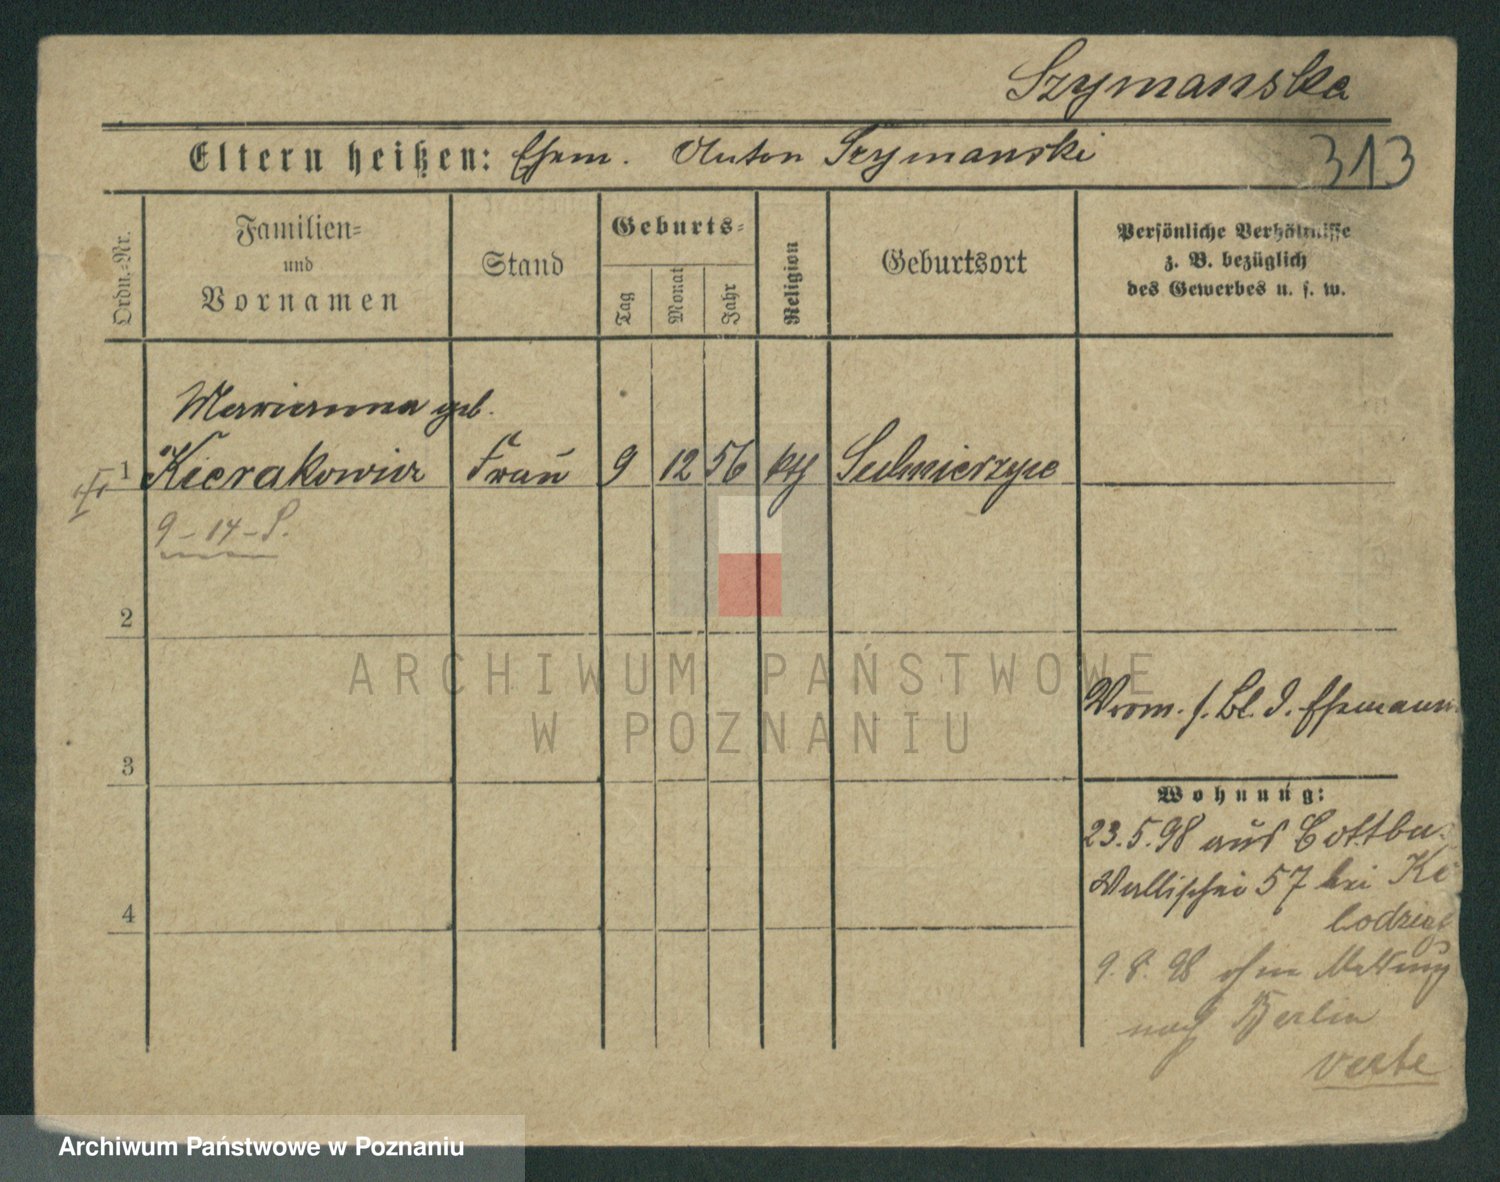 Szymanska
Eltern heißen: Ehem. Anton Szymanski
313
Ordn.-Nr.
Familien-
und
Vornamen
Stand
Geburts-
Tag
Monat
Jahr
Religion
Geburtsort
Persönliche Verhältnisse
z. B. bezüglich
des Gewerbes u. s. w.
Marianna geb.
1 Kierakowicz Frau 9 12 56 kth Sulmierzyce
9-14-P.
2
ARCHIWUM PAŃSTWOWE
W POZNANIU
Vrom. s. Bl. d. Ehemann
3
Wohnung:
23.5.98 aus Cottbu
Wallischei 57 bei
4
9.8.98 ohne Meldung
nach Berlin
verte
Archiwum Państwowe w Poznaniu